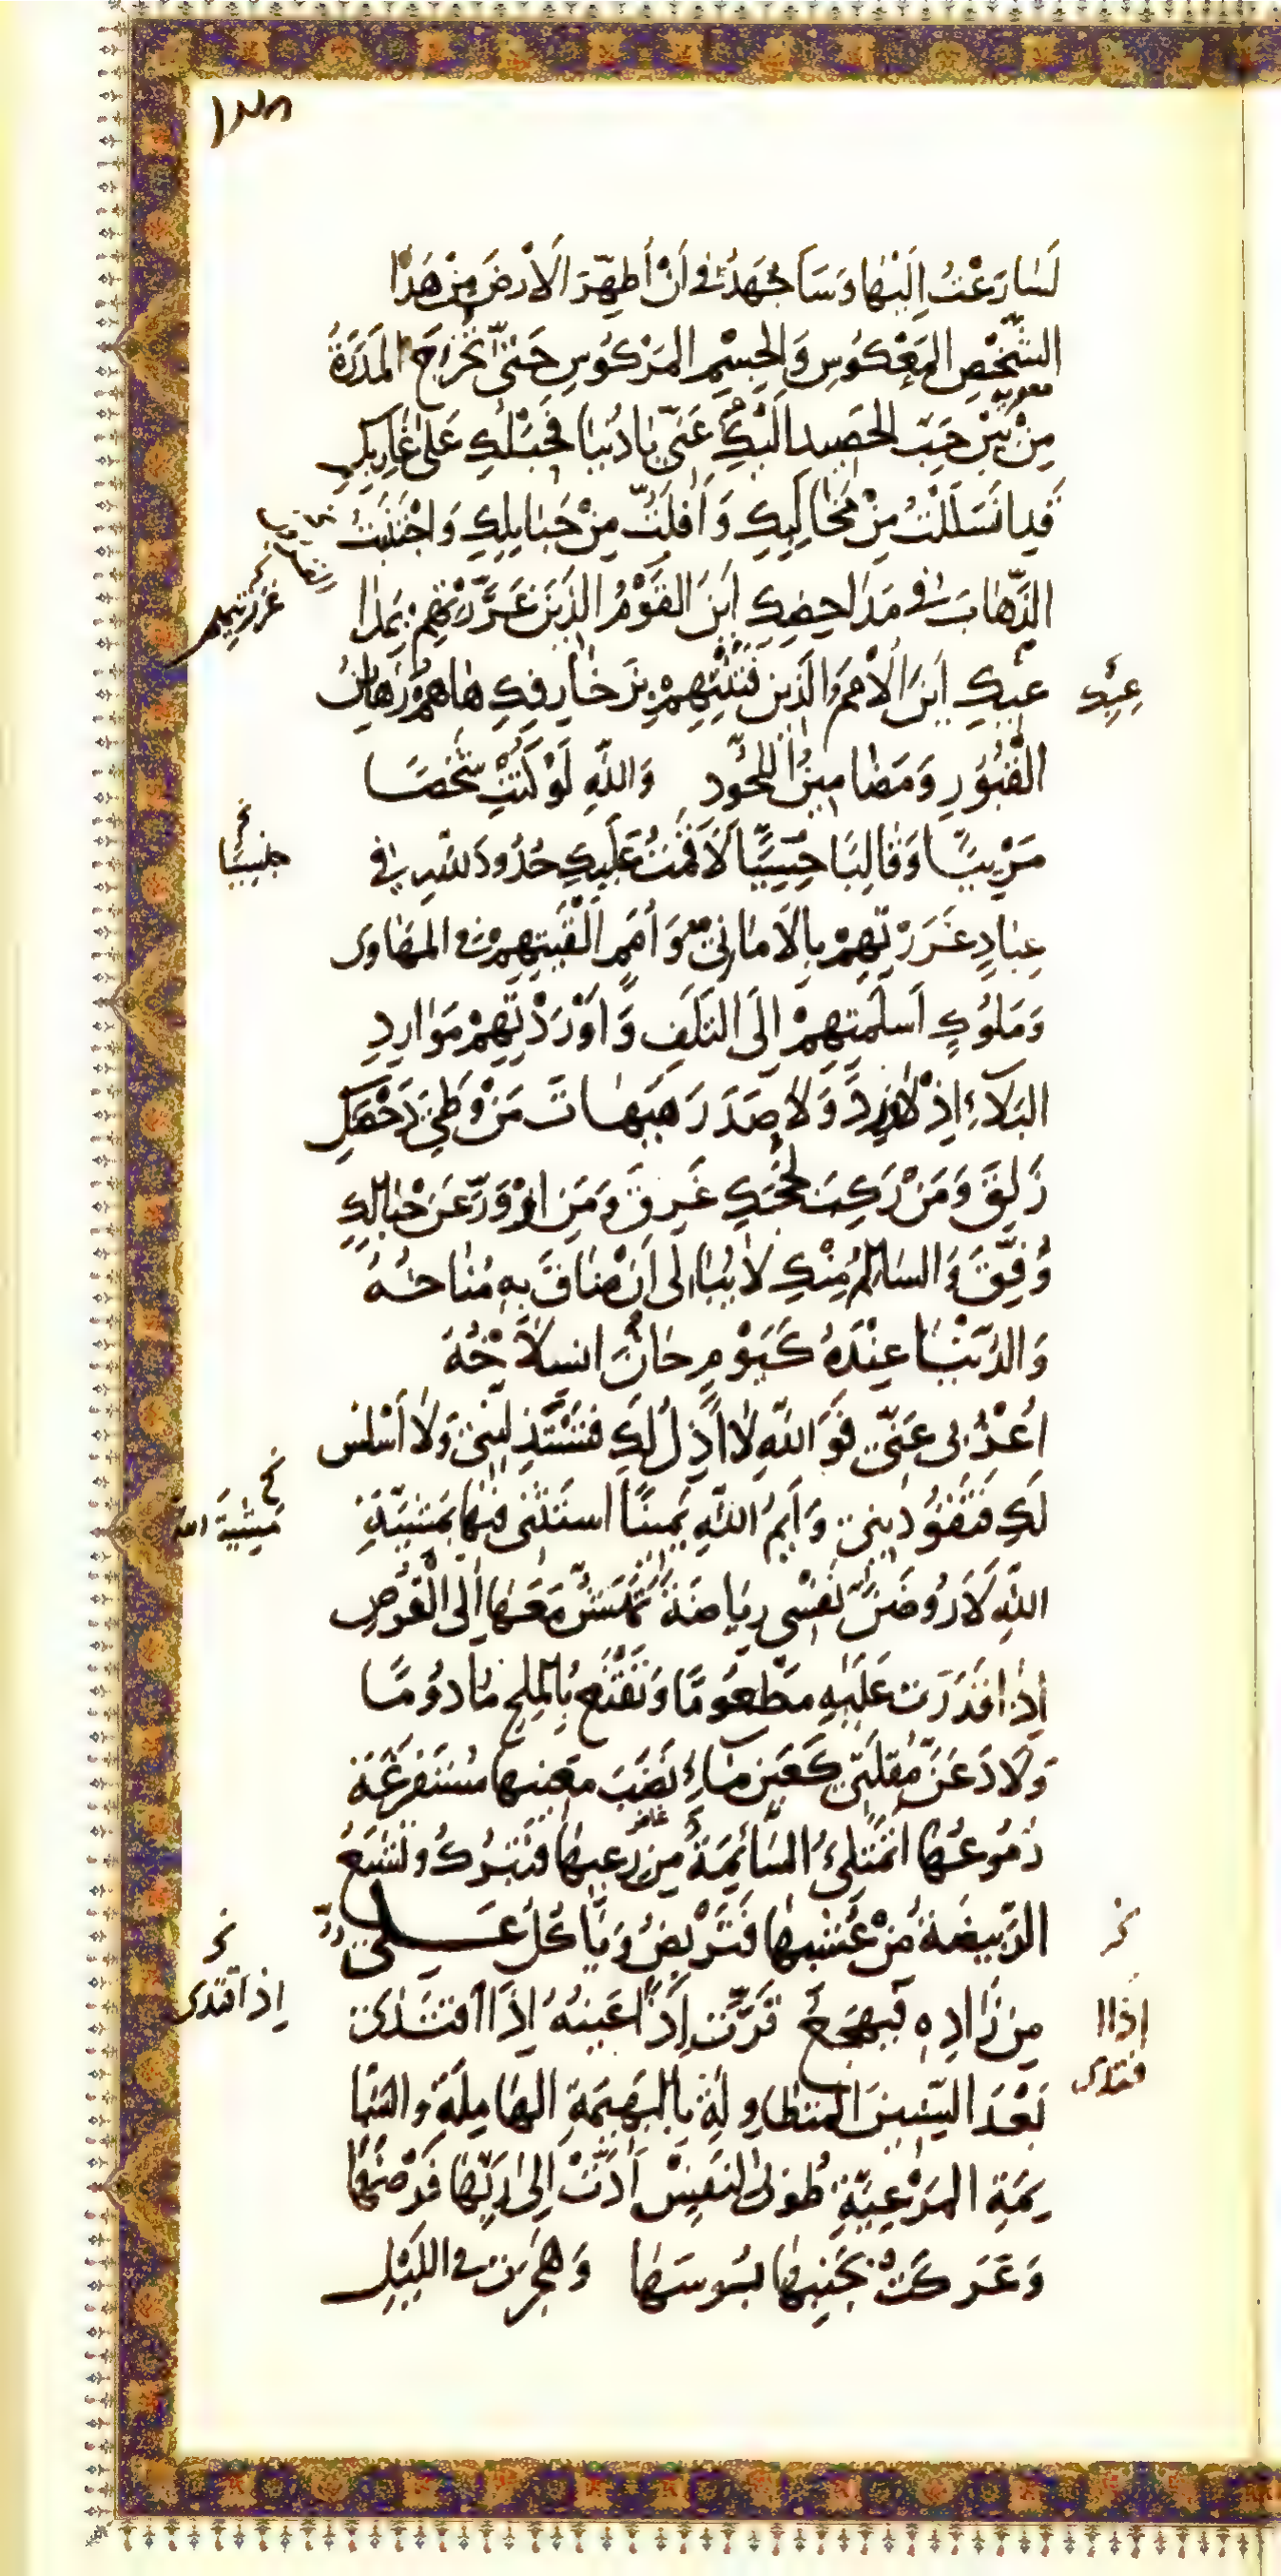 لَسَارَعْتُ اِلَيْهَا وَسَاَجْهَدُ فِی اَنْ اُطَهِّرَ الْاَرْضَ مِنْ هَذَا
الشَّخْصِ الْمَعْكُوسِ وَالْجِسْمِ الْمَرْكُوسِ حَتّٰى تَخْرُجَ الْمَدَرَةُ
مِنْ بَيْنِ حَبِّ الْحَصِيدِ اِلَيْكِ عَنّى يَا دُنْيَا فَحَبْلُكِ عَلٰى غَارِبِكِ
قَدِ انْسَلَلْتُ مِنْ مَخَالِبِكِ وَاَفْلَتُّ مِنْ حَبَائِلِكِ وَاجْتَنَبْتُ
الذَّهَابَ فِی مَدَاحِضِكِ اَيْنَ الْقَوْمُ الَّذِينَ غَرَّرْتِهِمْ بِمَدَا
عِبِكِ اَيْنَ الْاُمَمُ الَّذِينَ فَتَنْتِهِمْ بِزَخَارِفِكِ هَا هُمْ رَهَائِنُ
عِبِكِ
الْقُبُورِ وَمَضَامِينُ اللُّحُودِ وَاللّٰهِ لَوْ كُنْتِ شَخْصًا
مَرْئِيًّا وَقَالِبًا حِسِّيًّا لَاَقَمْتُ عَلَيْكِ حُدُودَ اللّٰهِ فِی
عِبَادٍ غَرَرْتِهِمْ بِالْاَمَانِیِّ وَاُمَمٍ اَلْقَيْتِهِمْ فِی الْمَهَاوِى
وَمُلُوكٍ اَسْلَمْتِهِمْ اِلَى التَّلَفِ وَاَوْرَدْتِهِمْ مَوَارِدَ
الْبَلَاءِ اِذْ لَا وِرْدَ وَلَا صَدَرَ هَيْهَاتَ مَنْ وَطِئَ دَحْضَكِ
زَلِقَ وَمَنْ رَكِبَ لُجَجَكِ غَرِقَ وَمَنِ ازْوَرَّ عَنْ حِبَالِكِ
وُفِّقَ وَالسَّالِمُ مِنْكِ لَا يُبَالِى اِنْ ضَاقَ بِهِ مُنَاخُهُ
وَالدُّنْيَا عِنْدَهُ كَيَوْمٍ حَانَ انْسِلَاخُهُ
اُعْزُبِى عَنّى فَوَاللّٰهِ لَا اَذِلُّ لَكِ فَتَسْتَذِلّينى وَلَا اَسْلَسُ
لَكِ فَتَقُودينى وَاَيْمُ اللّٰهِ يَمينًا اَسْتَثْنى فيهَا بِمَشِيَّةِ
مَشِيَّةَ اللّٰه
اللّٰهِ لَاَرُوضَنَّ نَفْسى رِيَاضَةً تَهَشُّ مَعَهَا اِلَى الْقُرْصِ
اِذَا قَدَرَتْ عَلَيْهِ مَطْعُومًا وَتَقْنَعُ بِالْمِلْحِ مَادُومًا
وَلَاَدَعَنَّ مُقْلَتى كَعَيْنِ مَاءٍ نَضَبَ مَعِينُهَا مُسْتَفْرَغَةً
دُمُوعُهَا اَتَمْتَلِئُ السَّائِمَةُ مِنْ رِعْيِهَا فَتَبْرُكُ وَتَشْبَعُ
الرَّبِيضَةُ مِنْ عُشْبِهَا فَتَرْبِضُ وَيَاْكُلُ عَلِىٌّ
مِنْ زَادِهِ فَيَهْجَعُ قَرَّتْ اِذًا عَيْنُهُ اِذَا اقْتَدٰى
اِذَا اقْتَدٰى
بَعْدَ السِّنِينَ الْمُتَطَاوِلَةِ بِالْبَهِيمَةِ الْهَامِلَةِ وَالسَّا
ئِمَةِ الْمَرْعِيَّةِ طُوبٰى لِنَفْسٍ اَدَّتْ اِلٰى رَبِّهَا فَرْضَهَا
وَعَرَكَتْ بِجَنْبِهَا بُؤْسَهَا وَهَجَرَتْ فِی اللَّيْلِ